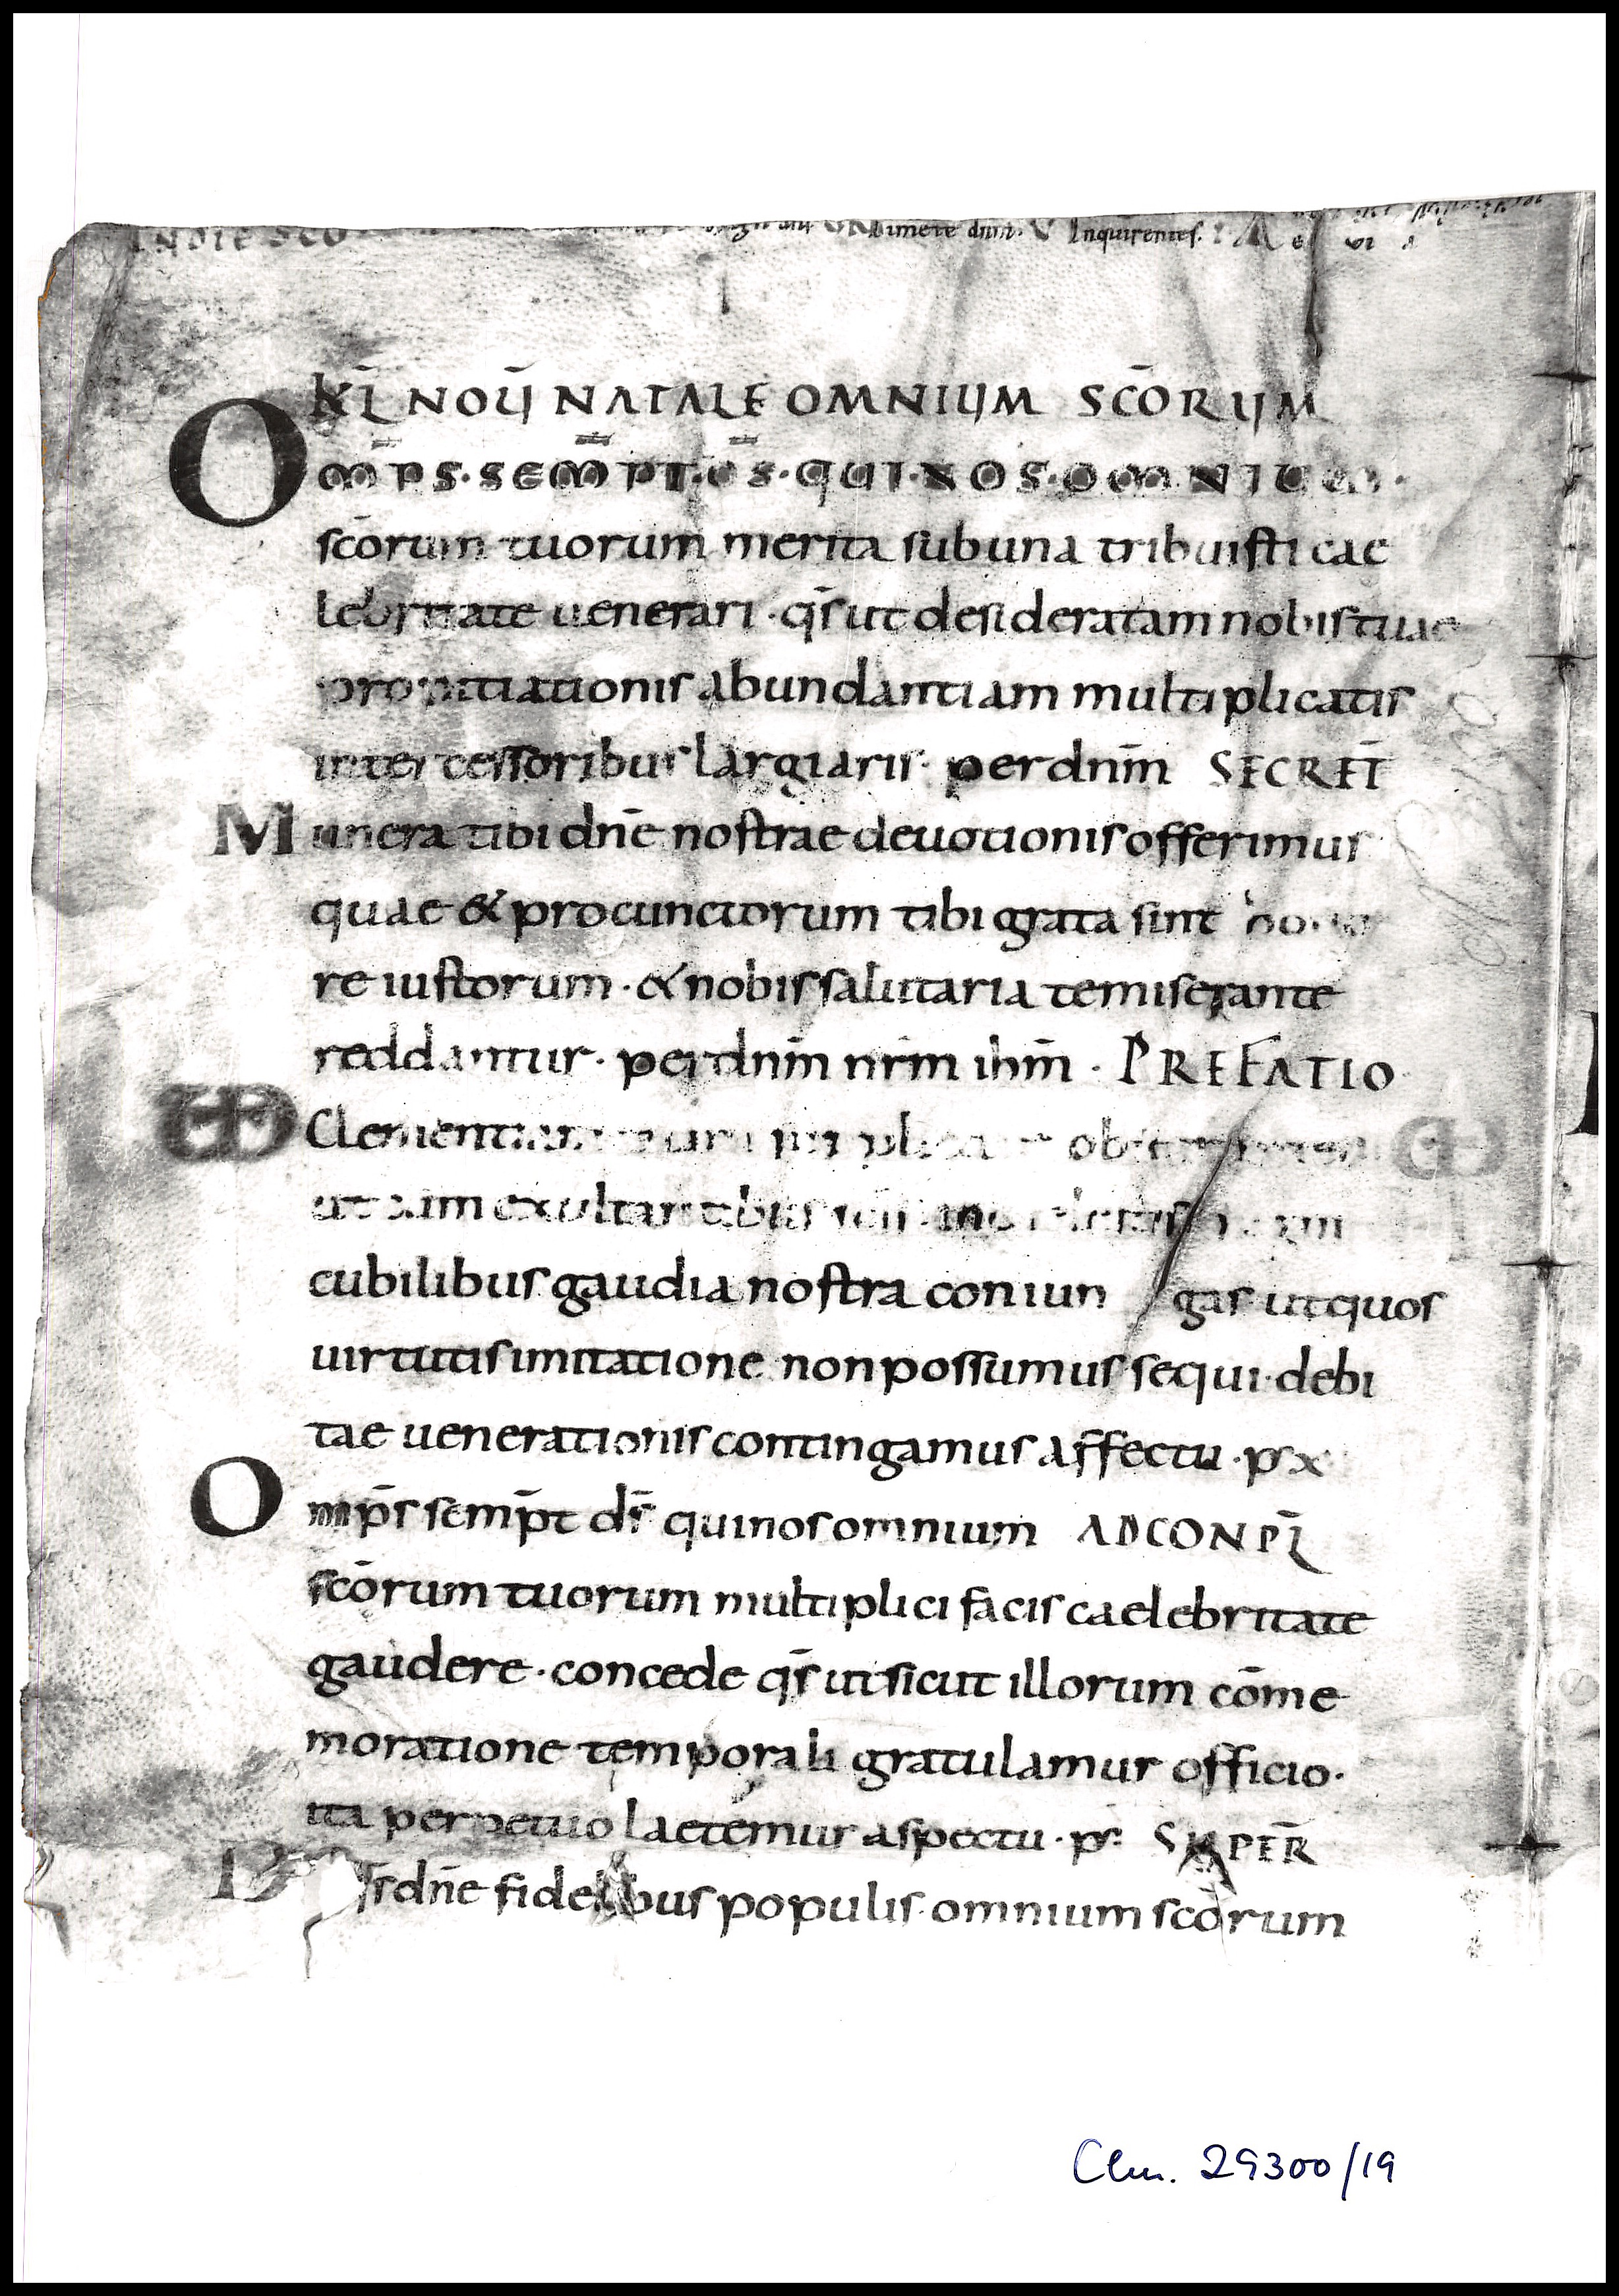 INDIE SCO Timete dnm. V Inquirentes.
KL̄ NOV̄ NATALE OMNIUM SCŌRUM
OMP̄S. SEMP̄T. D̄S. QUI. NOS. OMNIUM.
scōrum tuorum merita sub una tribuisti cae
lebritate uenerari · qs̄ ut desideratam nobis tuae
propitiationis abundantiam multiplicatis
intercessoribus largiaris · per dnm̄ SECRET̄
Munera tibi dnē nostrae deuotionis offerimus
quae & pro cunctorum tibi grata sint hono
re iustorum · & nobis salutaria te miserante
reddantur · per dnm̄ nrm̄ ihm̄ · PREFATIO
VD Clementiam
exultantibus
cubilibus gaudia nostra coniungas ut quos
uirtutis imitatione non possumus sequi · debi
tae uenerationis contingamus affectu · p x
Omp̄s semp̄t ds̄ qui nos omnium AD CONPL̄
scōrum tuorum multiplici facis caelebritate
gaudere · concede qs̄ ut sicut illorum cōme
moratione temporali gratulamur officio ·
ita perpetuo laetemur aspectu · p SUPER̄
dnē fidelibus populis omnium scōrum
Clm. 29300/19